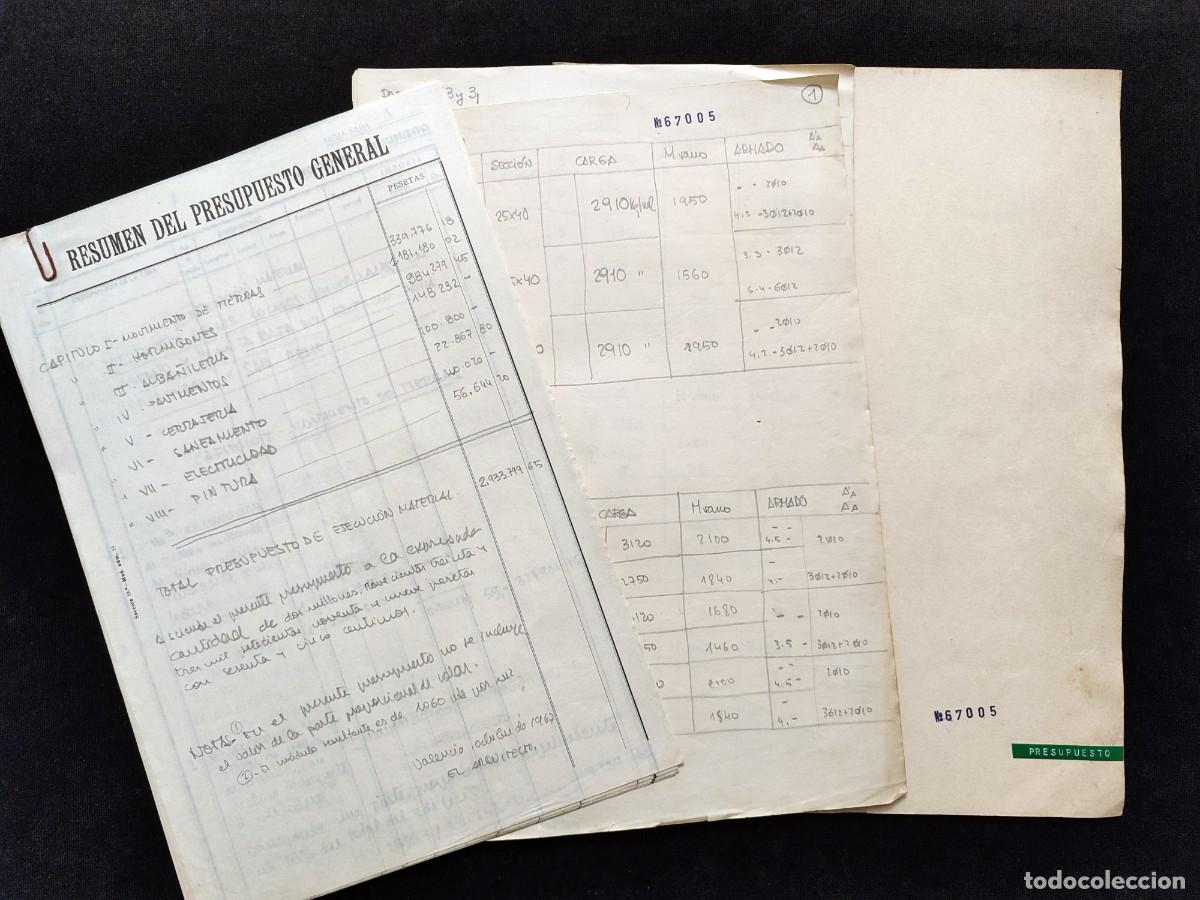 RESUMEN DEL PRESUPUESTO GENERAL
PESETAS
CAPITULO I- MOVIMIENTO DE TIERRAS 339.776 18
" II- HORMIGONES 1.181.180 02
" III- ALBAÑILERIA 984.279 45
" IV- PAVIMENTOS 148.232 -
" V- CERRAJERIA 100.800 -
" VI- SANEAMIENTO 22.867 80
" VII- ELECTRICIDAD 40.020 -
" VIII- PINTURA 56.644 20
TOTAL PRESUPUESTO DE EJECUCIÓN MATERIAL. 2.933.799 65
Asciende el presente presupuesto a la expresada
cantidad de dos millones, novecientas treinta y
tres mil setecientas noventa y nueve pesetas
con sesenta y cinco centimos.
NOTAS- ① En el presente presupuesto no se incluye
el valor de la parte proporcional de solar.
② - El módulo resultante es de 1060
Valencia, octubre de 1967
EL ARQUITECTO,
3 y 3,
①
№67005
SECCIÓN CARGA M vano ARMADO A'A AA
25x40 2910 kg/ml 1950 - - 2Ø10
4.2 - 3Ø12+2Ø10
5x40 2910 " 1560 3.3 - 3Ø12
6.4 - 6Ø12
0 2910 " 1950 - - 2Ø10
4.2 - 3Ø12+2Ø10
CARGA M vano ARMADO A'A AA
3120 2100 - - 2Ø10
4.5 -
2750 1840 -
4.- 3Ø12+2Ø10
120 1680 - - 2Ø10
50 1460 3.5 - 3Ø12+2Ø10
0 2100 - - 2Ø10
4.5 -
1840 -
4.- 3Ø12+2Ø10
№67005
PRESUPUESTO
todocoleccion